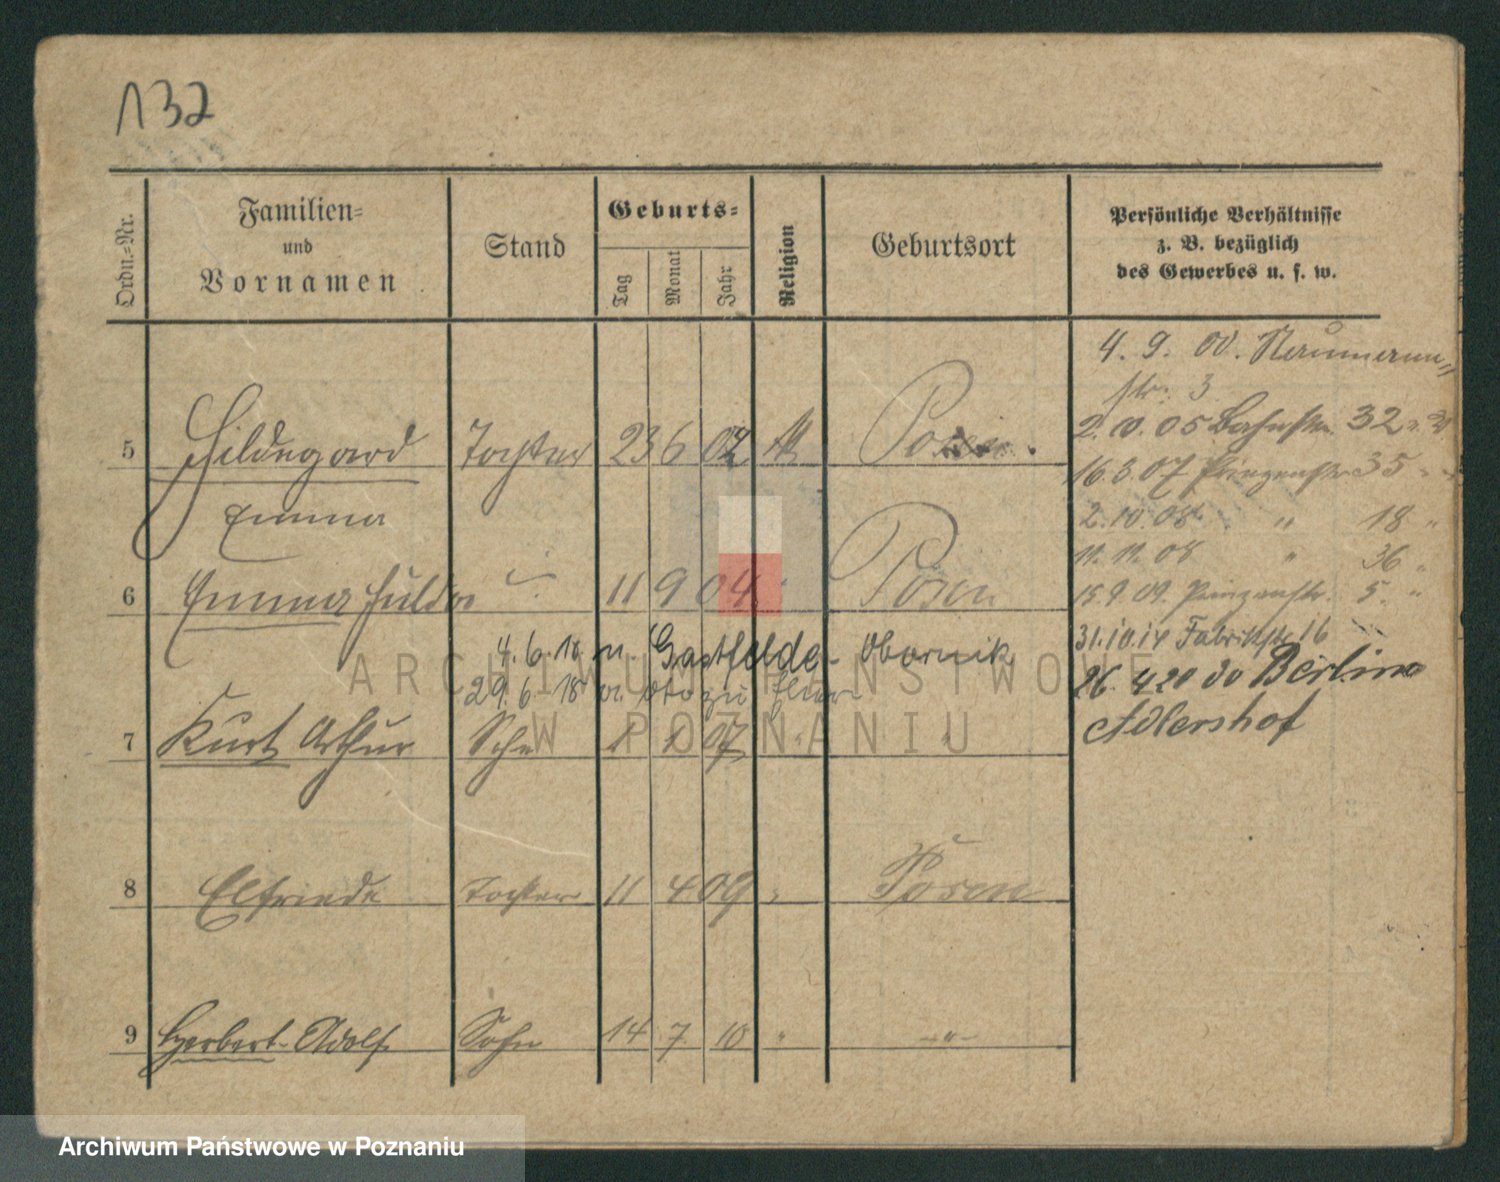 132
Ordn.-Nr.
Familien-
und
Vornamen
Stand
Geburts-
Tag
Monat
Jahr
Religion
Geburtsort
Persönliche Verhältnisse
z. B. bezüglich
des Gewerbes u. s. w.
4. 9. 00.
str. 3
5 Hildegard Tochter 23 6 02 Posen.
Emma
2. 10. 05 32
16.3.07 Prinzenstr 35 "
2.10.08 " 18 "
11.11.08 " 36 "
6 Emma Hulda " 11 9 04 " Posen
15.9.09. Prinzenstr. 5. "
4.6.18 n. Gastfelde- Obornik
31.10.14 Fabrikstr 16
29.6.18 v.
26.4.20 Berlin
7 Kurt Arthur Sohn 1 1 07 " "
Adlershof
8 Elfriede Tochter 11 4 09 " Posen
9 Herbert Adolf Sohn 14 7 10 " "
ARCHIWUM PAŃSTWOWE
W POZNANIU
Archiwum Państwowe w Poznaniu